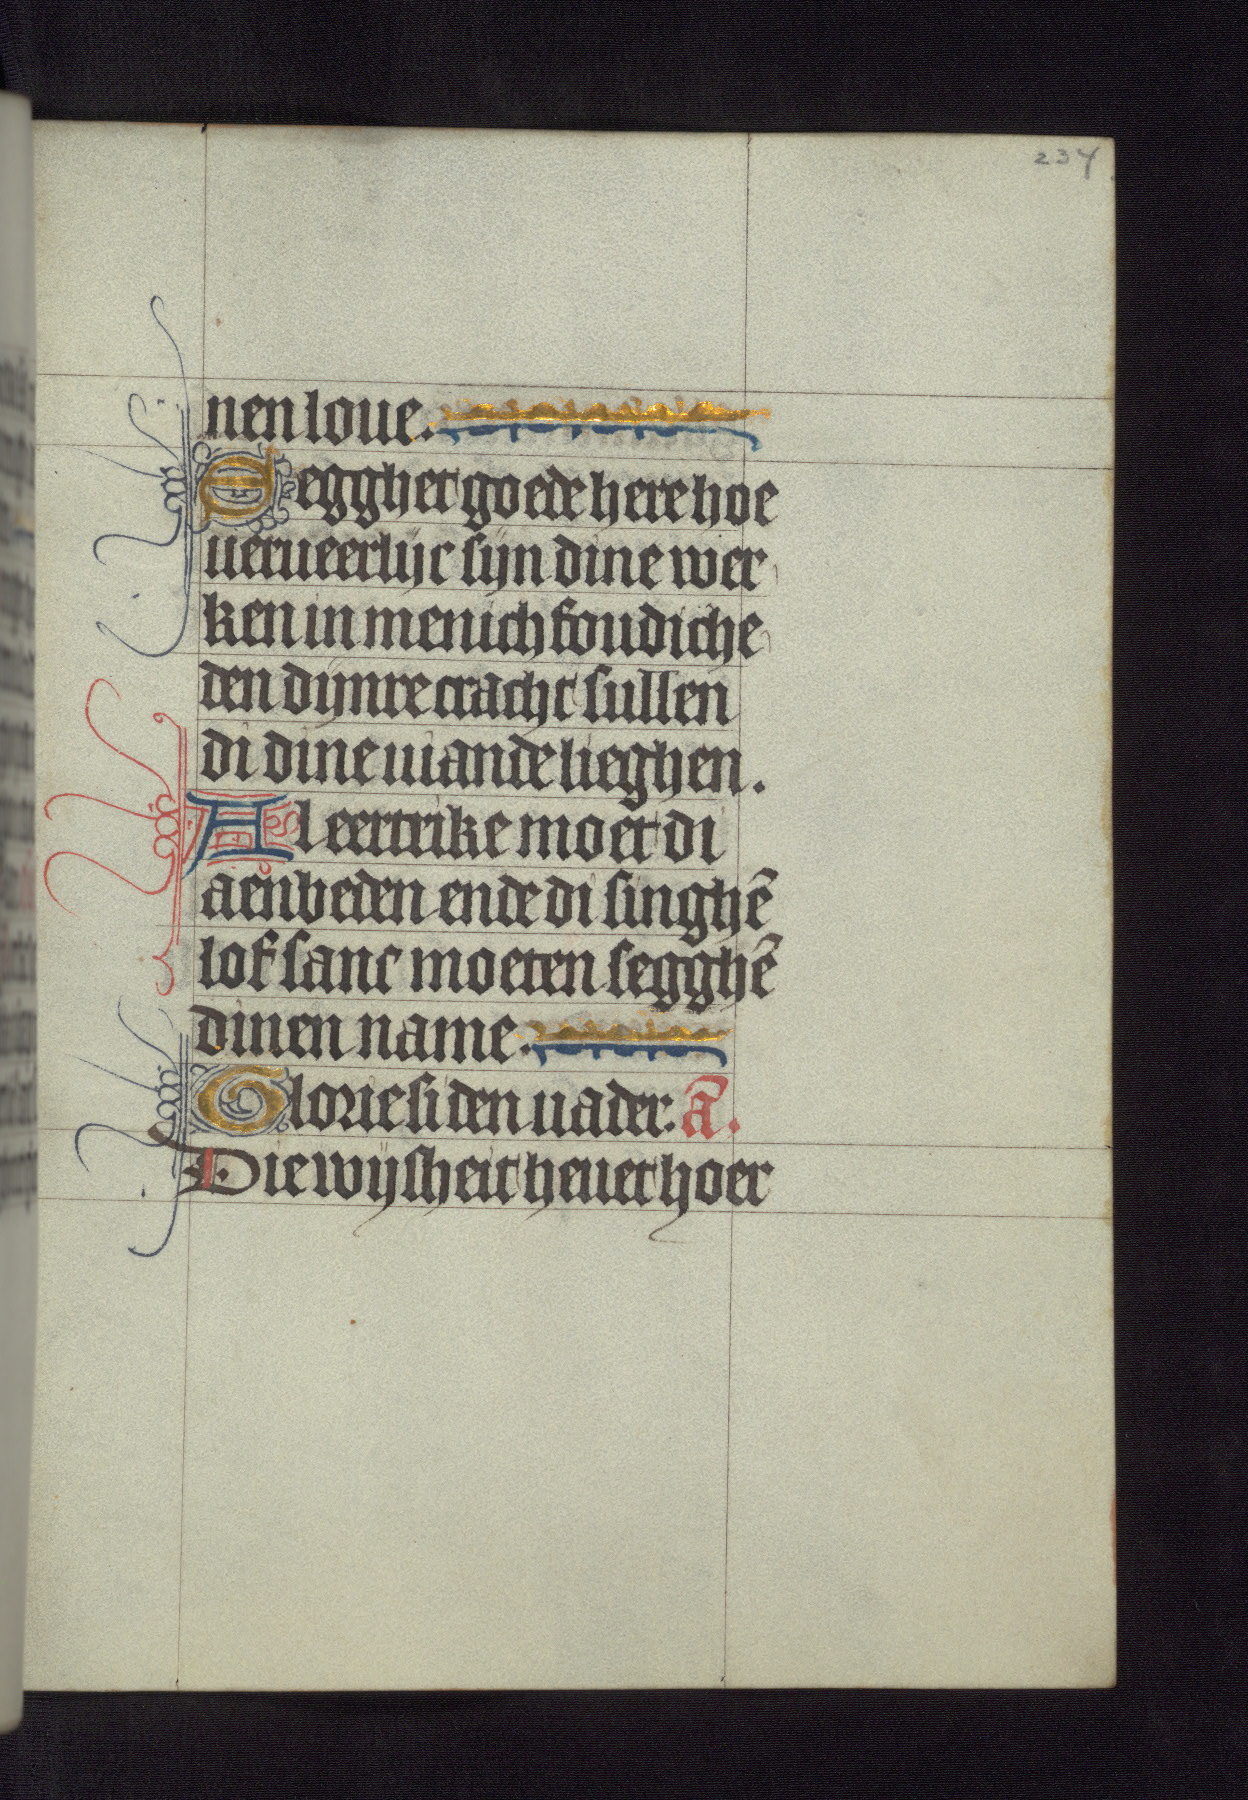 234
nen loue.
Segghet goede here hoe
uerueerlijc sijn dine wer
ken in menichfoudiche
den dijnre cracht sullen
di dine uiande lieghen.
Al eertrike moet di
aenbeden ende di singhē
lof sanc moeten segghē
dinen name.
Glorie si den uader. ā.
Die wijsheit heuet hoer